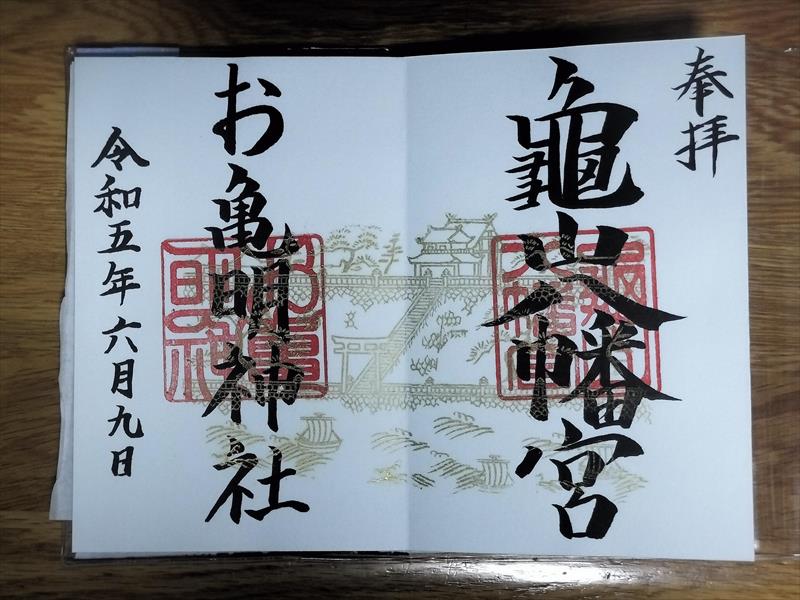 奉拝
龜山八幡宮
お亀明神社
令和五年六月九日